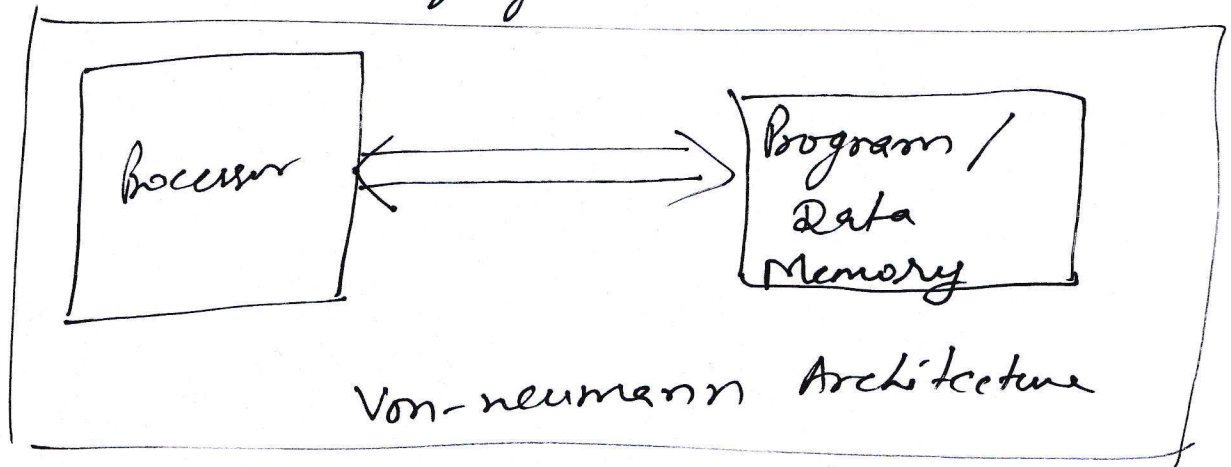 Processor
Program /
Data
Memory
Von-neumann Architecture